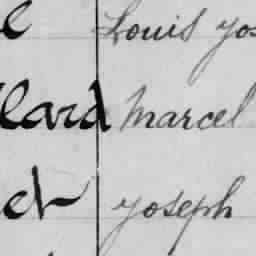 e Louis yos
llard Marcel
et yoseph